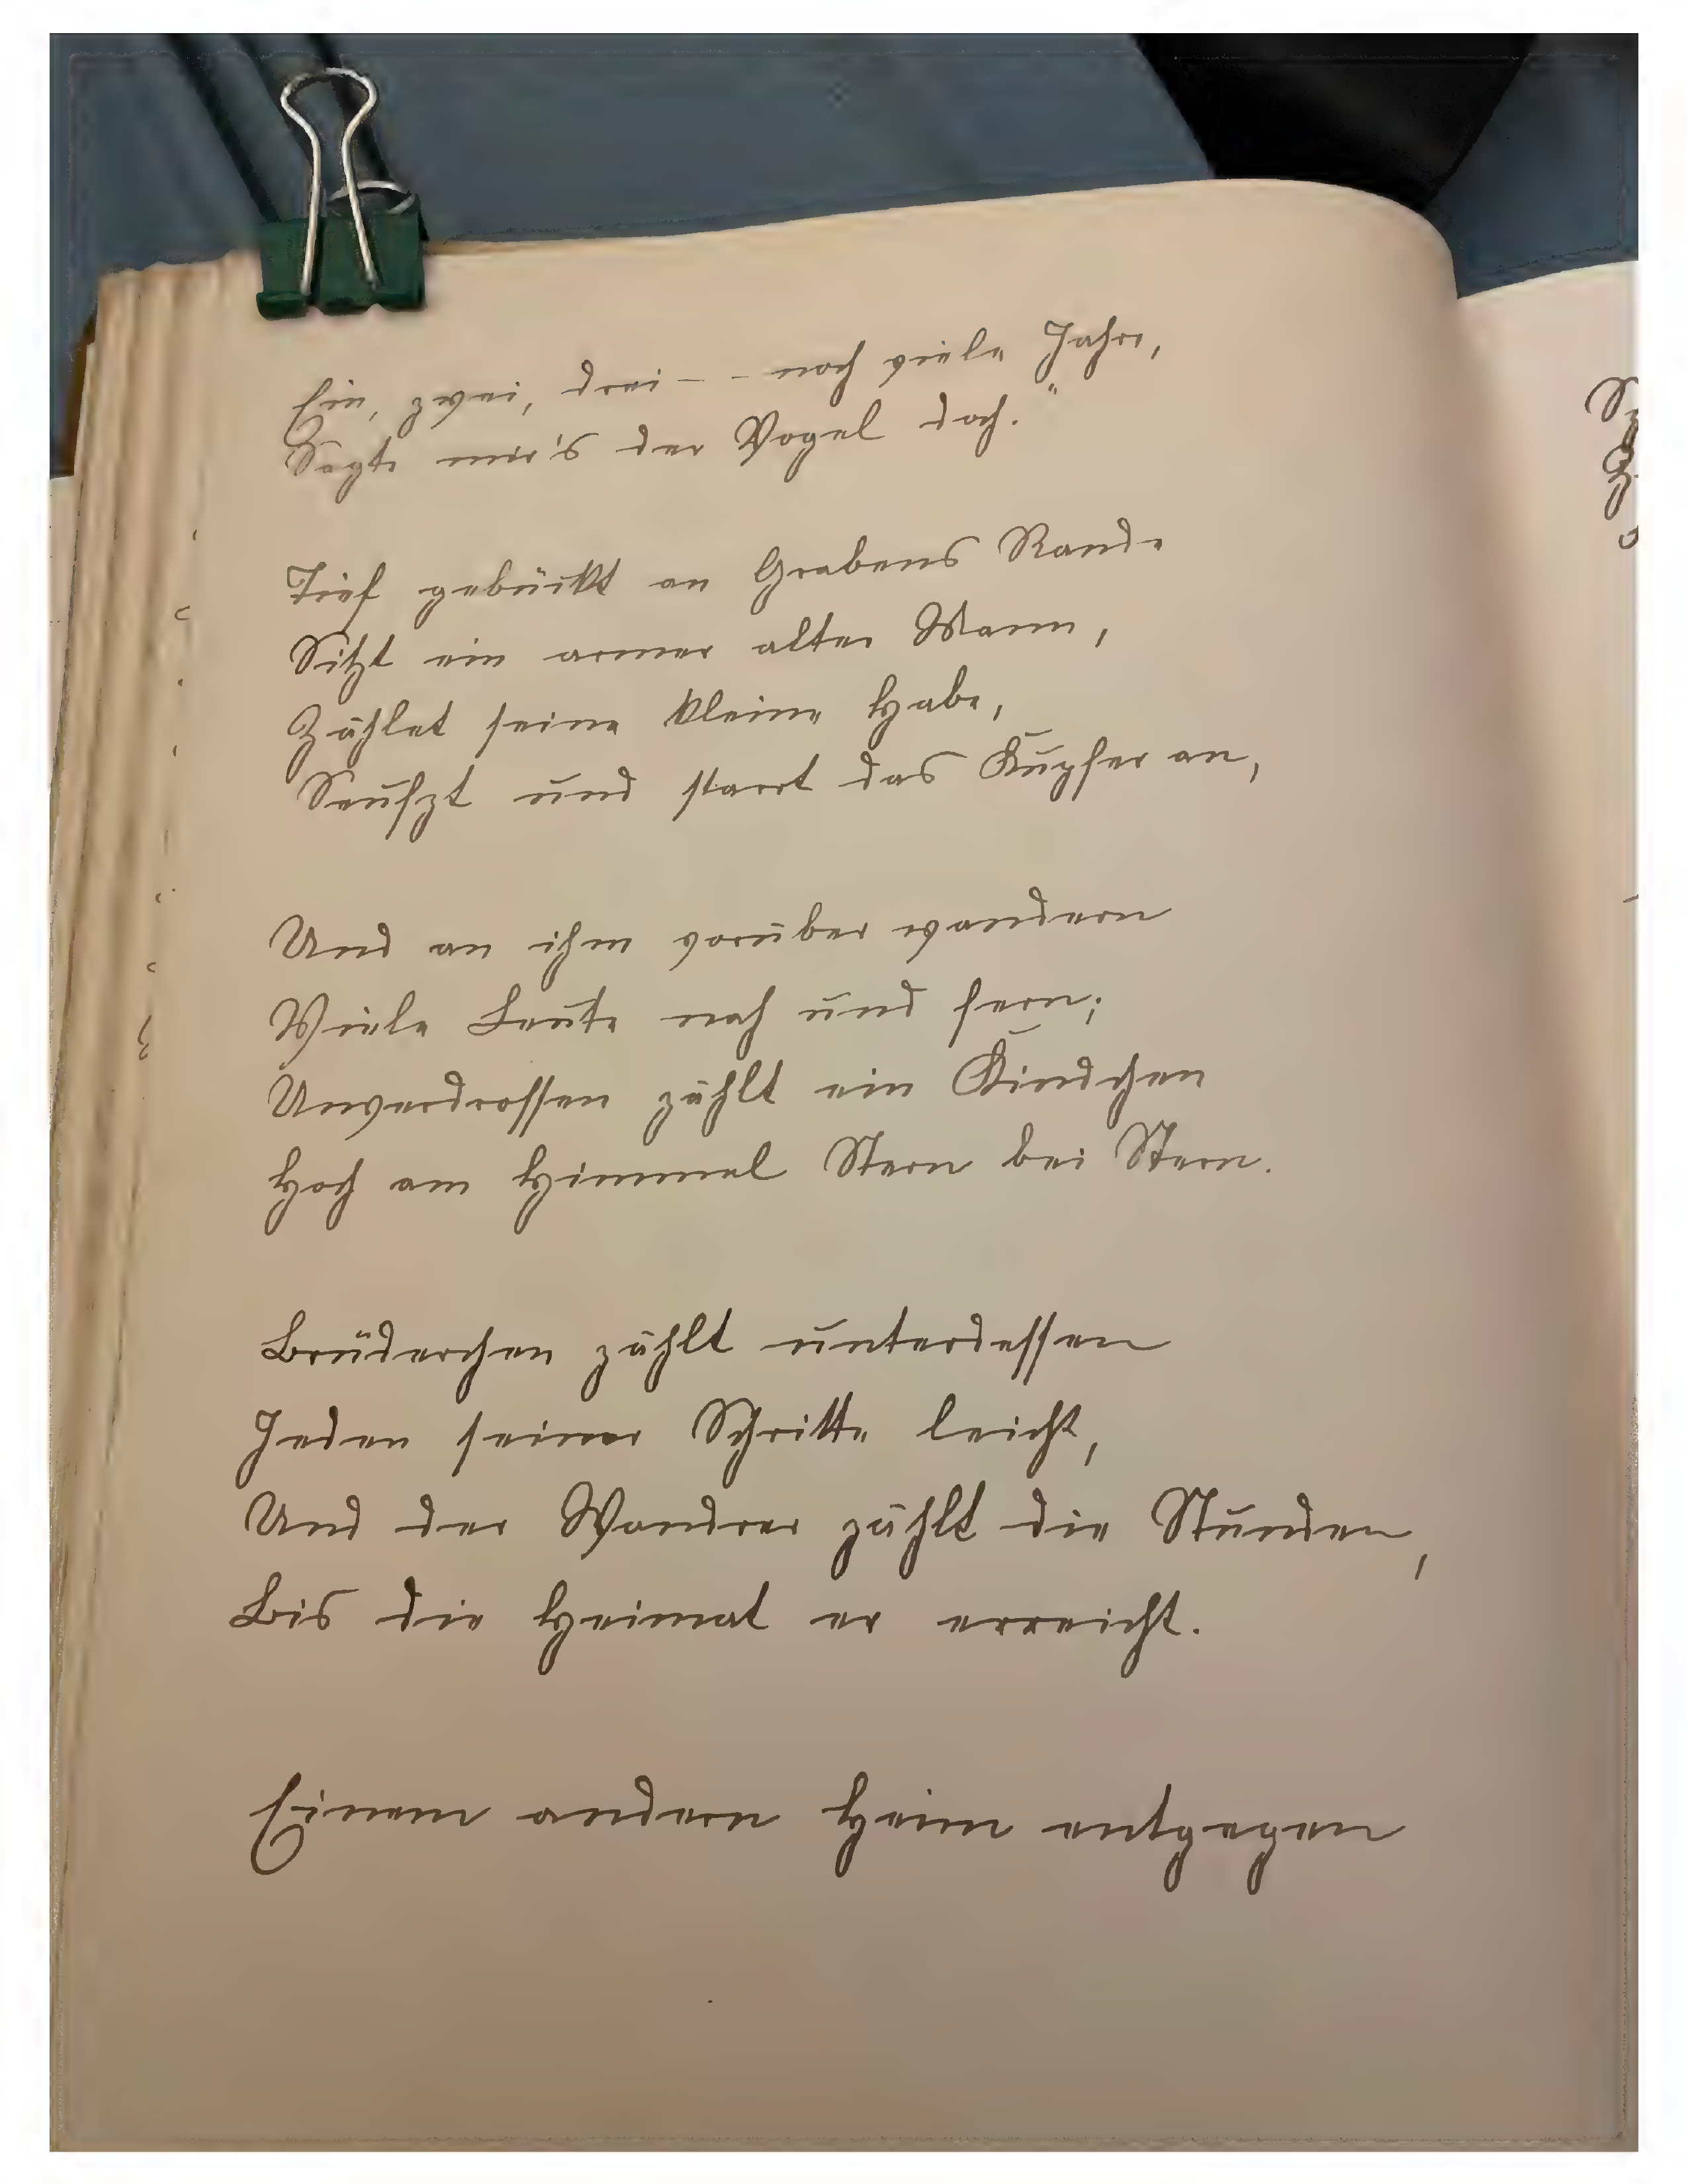 Ein, zwei, drei – – noch viele Jahre,
Sagte mir's der Vogel doch."
Tief gebückt an Grabens Rande
Sitzt ein armer alter Mann,
Zählet seine kleine Habe,
Seufzt und starrt das Kupfer an,
Und an ihm vorüber wandern
Viele Leute nah und fern;
Unverdrossen zählt ein Kindchen
Hoch am Himmel Stern bei Stern.
Brüderchen zählt unterdessen
Jeden seiner Schritte leicht,
Und der Wandrer zählt die Stunden,
Bis die Heimat er erreicht.
Einem andern Heim entgegen